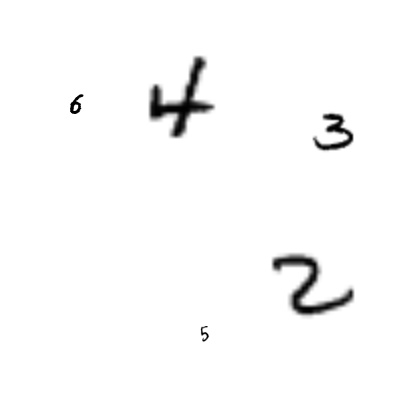 6 4 3
2
5